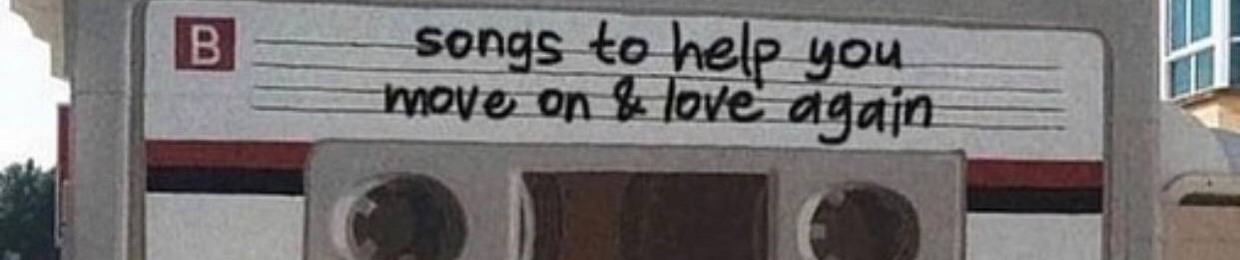 B
songs to help you
move on & love again